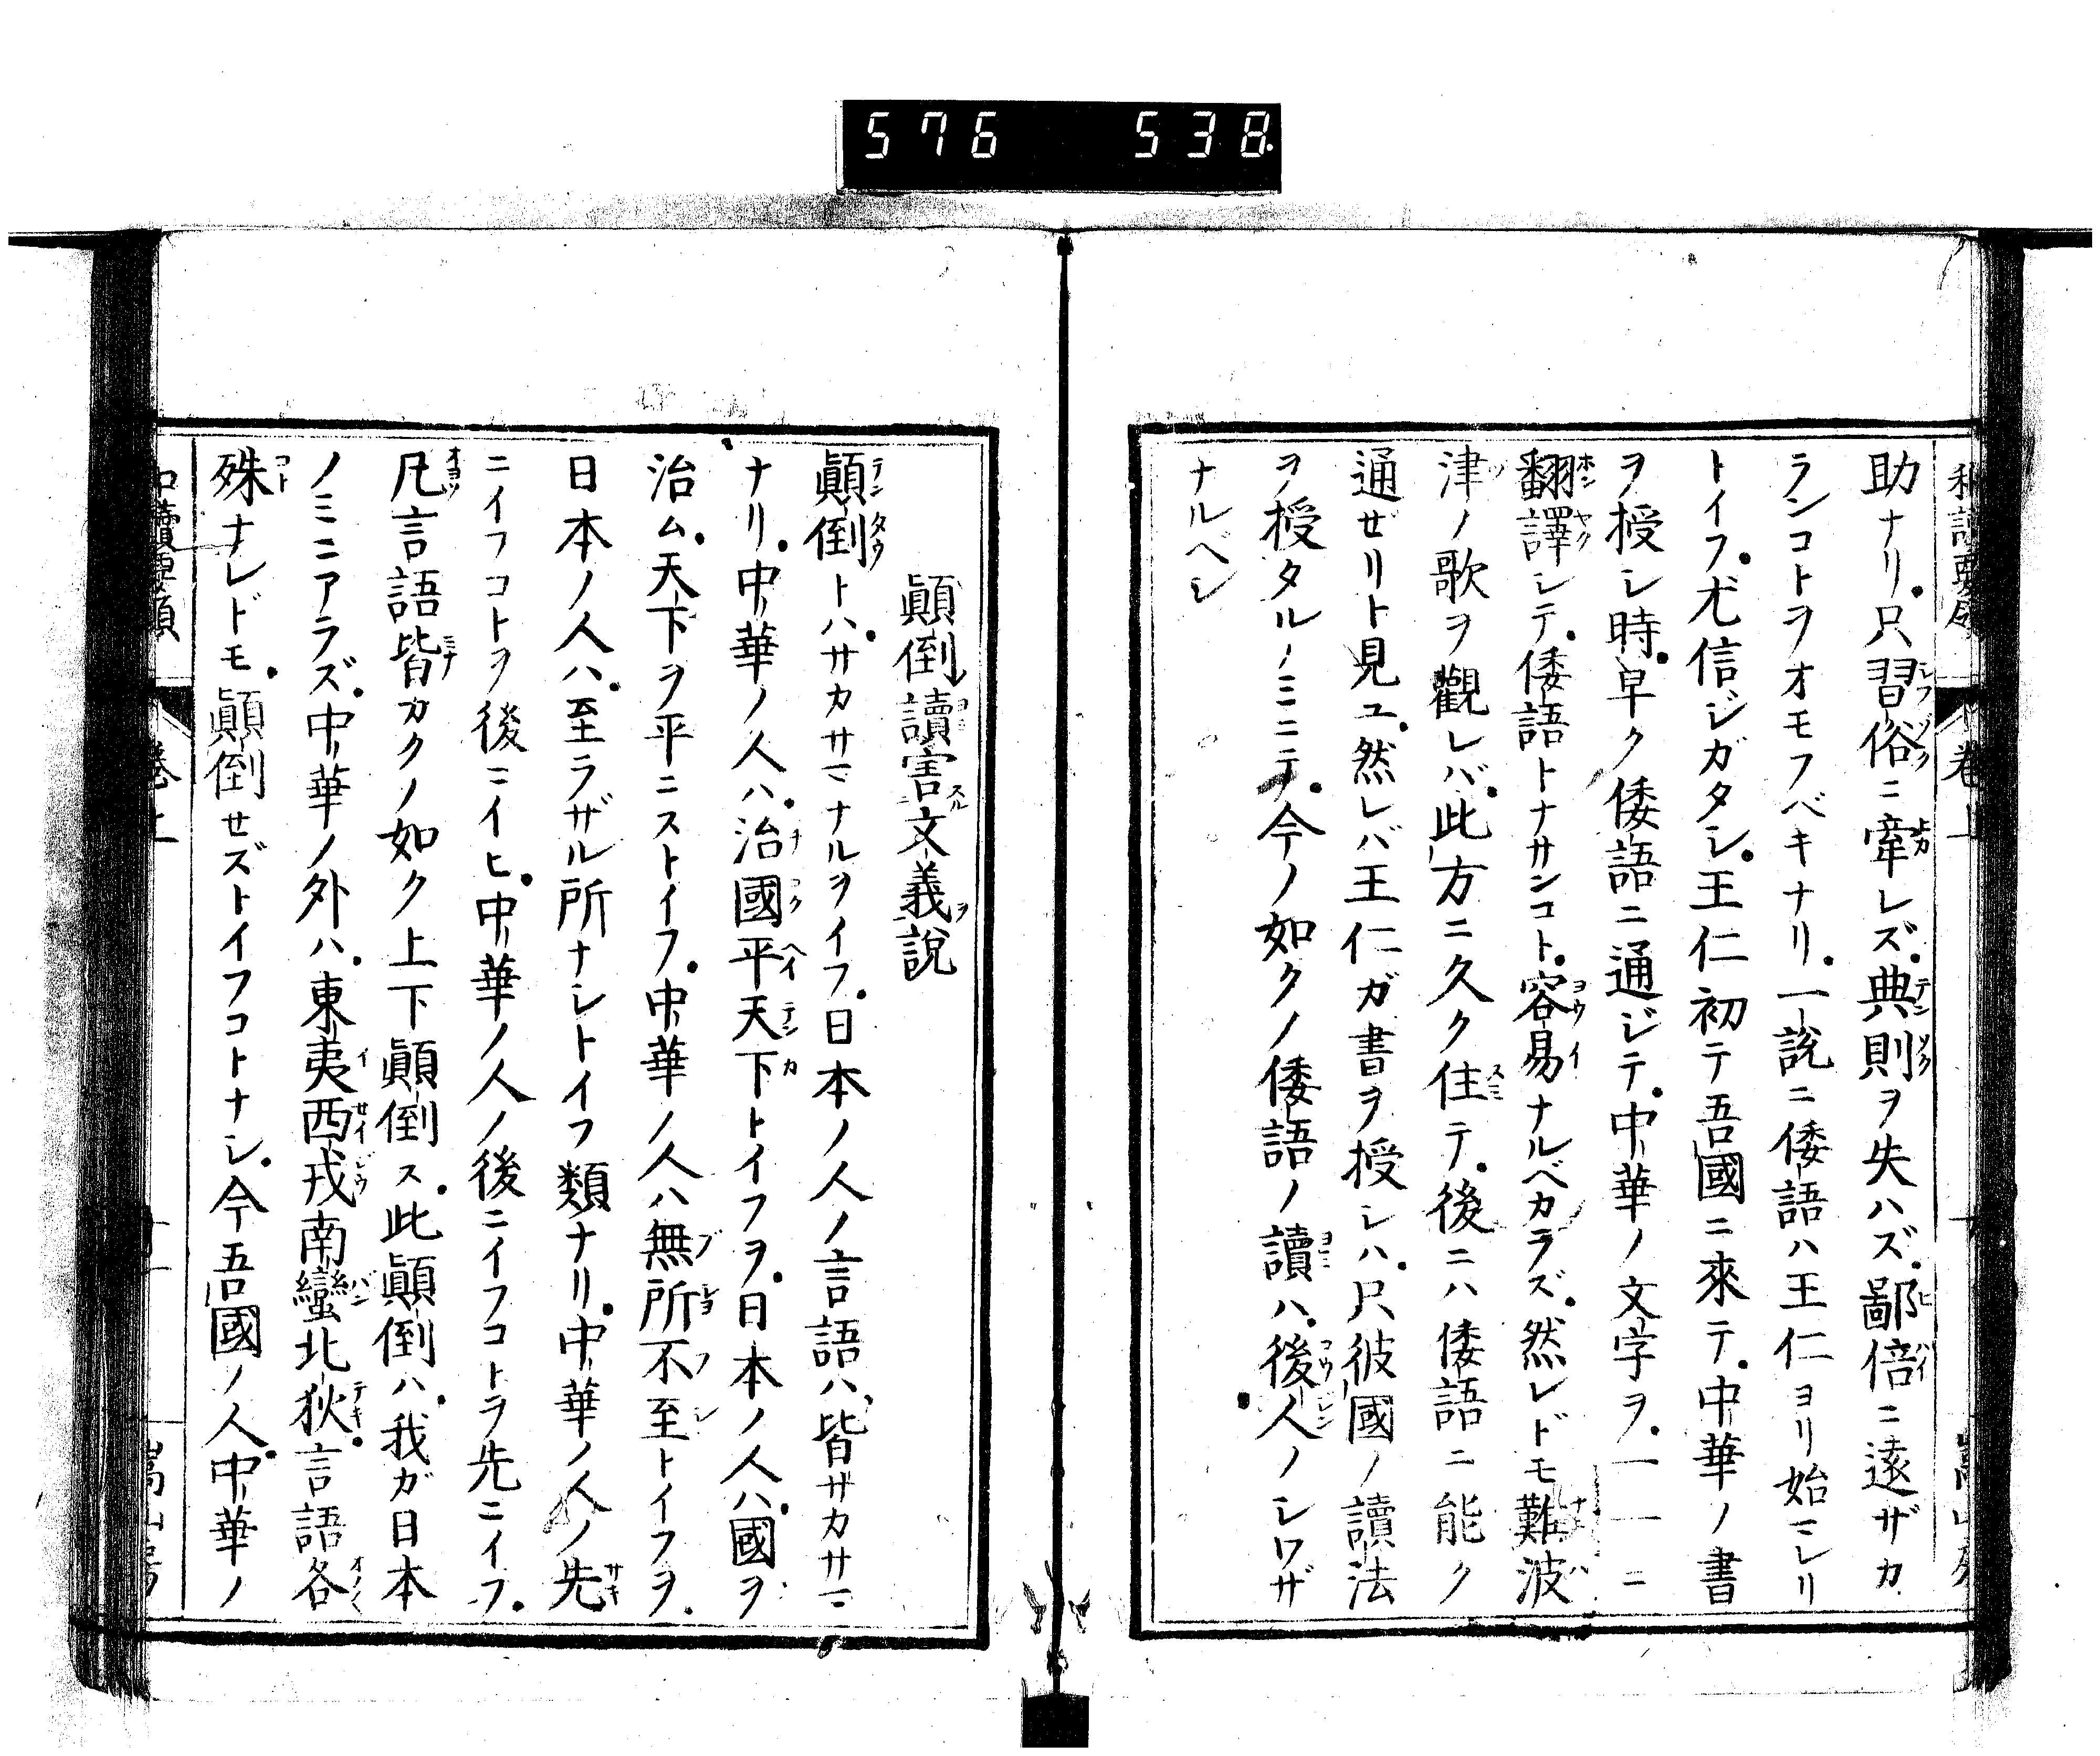 576 538
助ナリ。只習俗ニ牽レズ。典則ヲ失ハズ。鄙倍ニ遠ザカ
ランコトヲオモフベキナリ。一説ニ倭語ハ王仁ヨリ始マレリ
トイフ。尤信ジガタシ。王仁初テ吾國ニ來テ。中華ノ書
ヲ授シ時。早ク倭語ニ通ジテ。中華ノ文字ヲ。一一ニ
翻譯シテ。倭語トナサンコト。容易ナルベカラズ。然レドモ難波
津ノ歌ヲ觀レバ。此方ニ久ク住テ。後ニハ倭語ニ能ク
通ゼリト見ユ。然レバ王仁ガ書ヲ授シハ。只彼國ノ讀法
ヲ授タルノミニテ。今ノ如クノ倭語ノ讀ハ。後人ノシワザ
ナルベシ
顚倒讀害文義說
顚倒トハ。サカサマナルヲイフ。日本ノ人ノ言語ハ。皆サカサマ
ナリ。中華ノ人ハ。治國平天下トイフヲ。日本ノ人ハ。國ヲ
治ム。天下ヲ平ニストイフ。中華ノ人ハ無所不至トイフヲ。
日本ノ人ハ。至ラザル所ナシトイフ類ナリ。中華ノ人ノ先
ニイフコトヲ後ニイヒ。中華ノ人ノ後ニイフコトヲ先ニイフ。
凡言語皆カクノ如ク上下顚倒ス。此顚倒ハ。我ガ日本
ノミニアラズ。中華ノ外ハ。東夷西戎南蠻北狄。言語各
殊ナレドモ。顚倒セズトイフコトナシ。今吾國ノ人。中華ノ